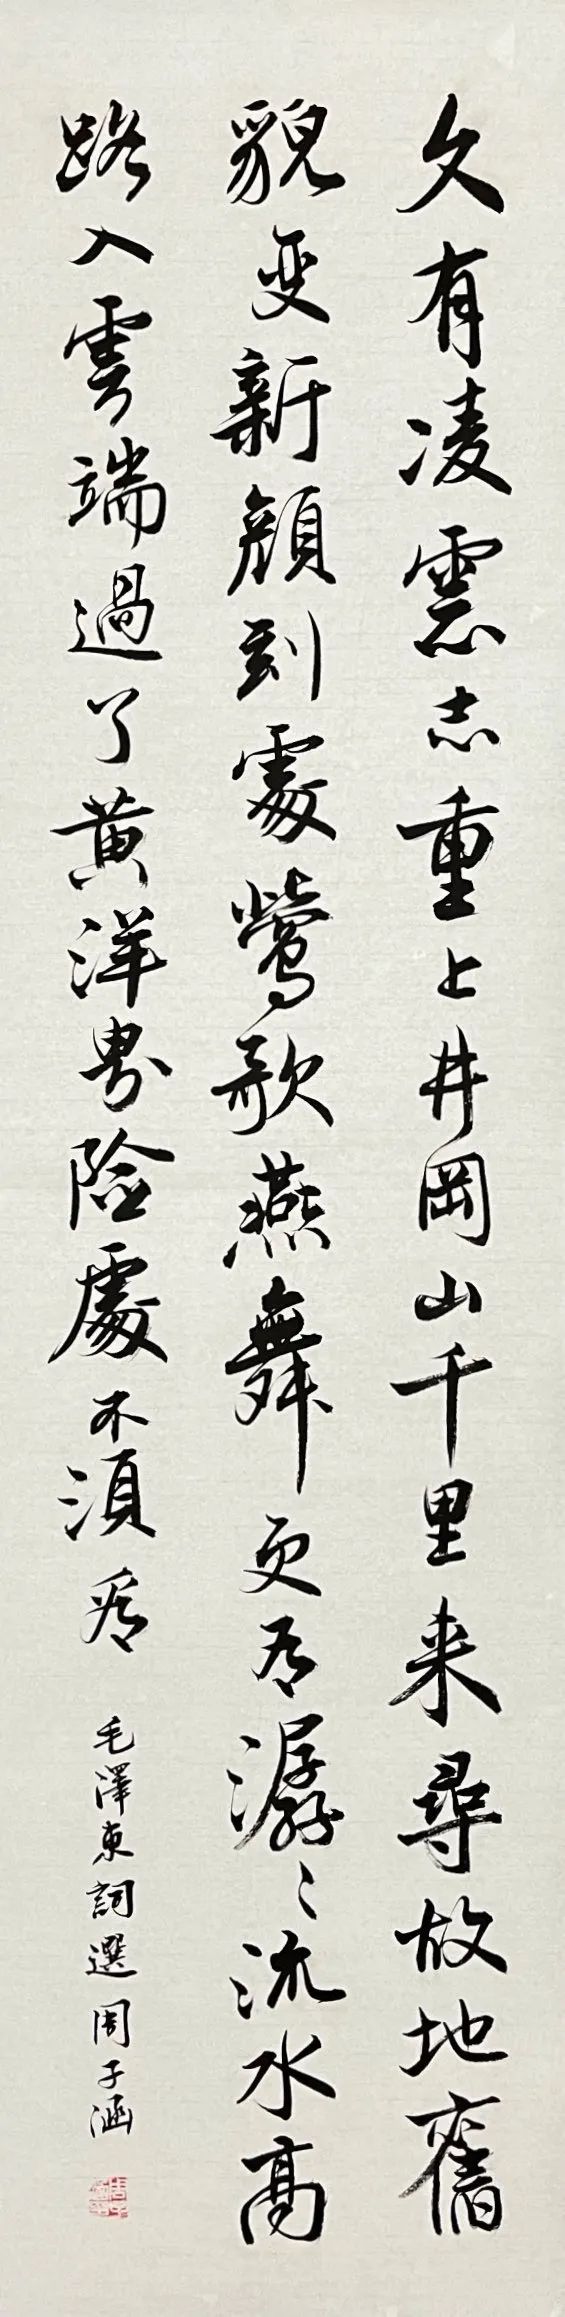 久有凌雲志重上井岡山千里来尋故地舊
貌变新顔到處莺歌燕舞更有潺〻流水高
路入雲端過了黄洋界险處不須看
毛澤東詞選周子涵